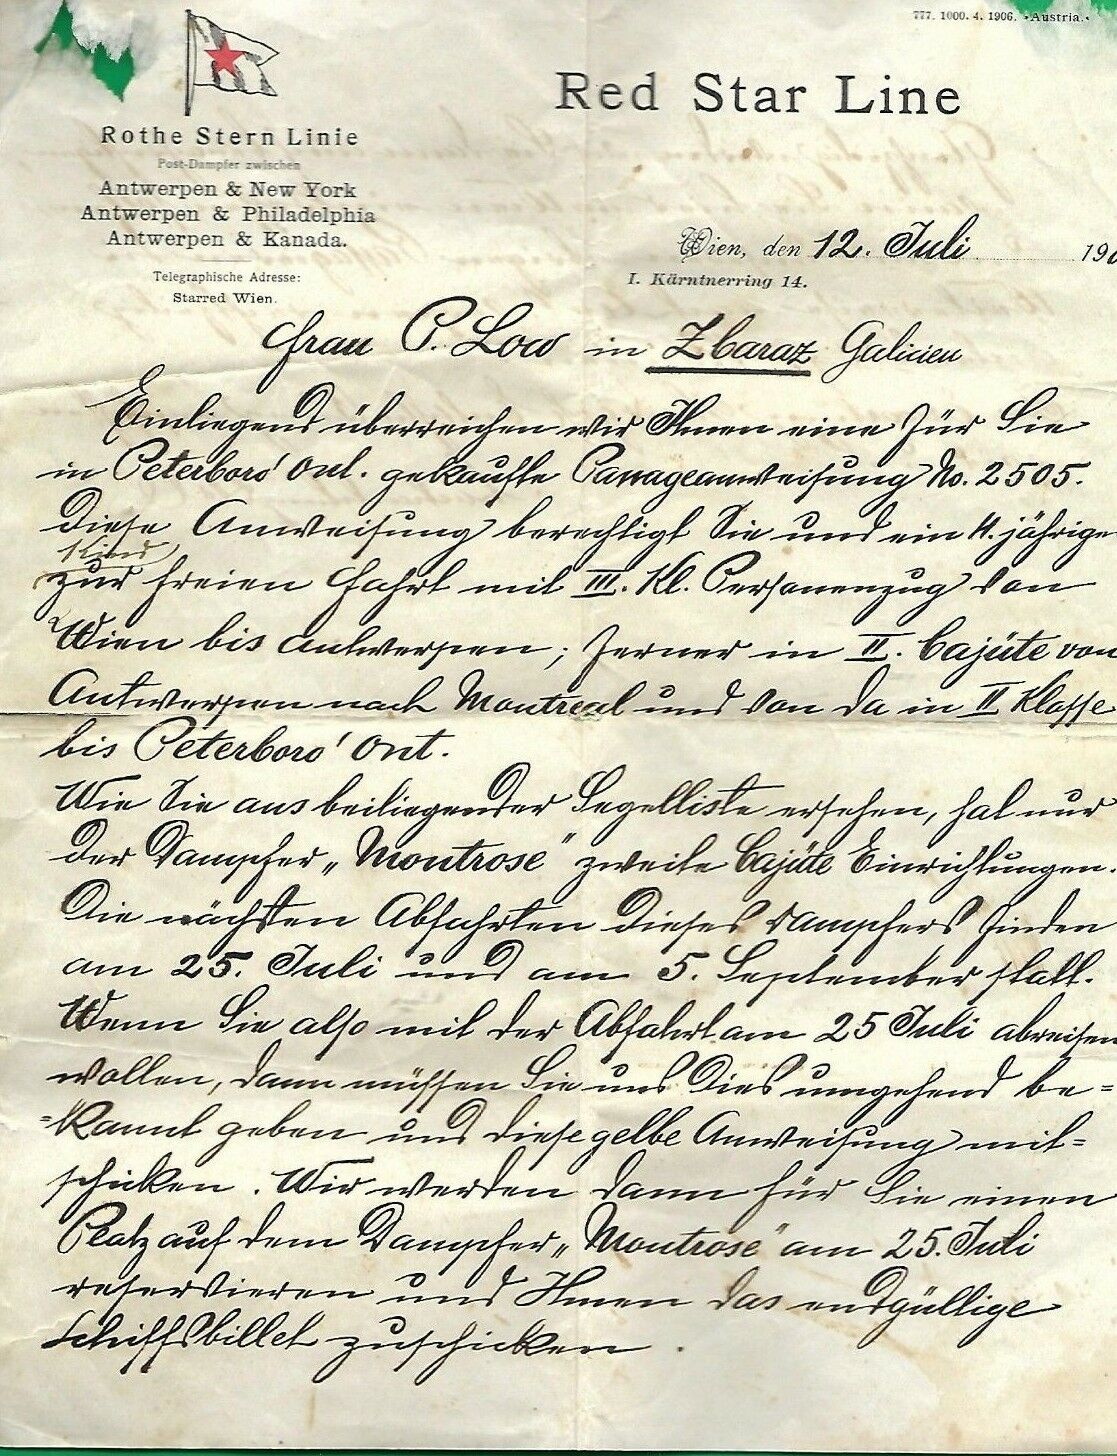 777. 1000. 4. 1906. »Austria.«
Red Star Line
Rothe Stern Linie
Post-Dampfer zwischen
Antwerpen & New York
Antwerpen & Philadelphia
Antwerpen & Kanada.
Telegraphische Adresse:
Starred Wien.
Wien, den 12. Juli 190
I. Kärntnerring 14.
Frau P. Low in Zbaraz Galicien
Einliegend überreichen wir Ihnen eine für Sie
in Peterboro' Ont. gekaufte Passageanweisung No. 2505.
Diese Anweisung berechtigt Sie und ein 4. jährige
1 Kind
zur freien Fahrt mit III. Kl. Personenzug von
Wien bis Antwerpen; ferner in II. Cajüte von
Antwerpen nach Montreal und von da in II Klasse
bis Peterboro' Ont.
Wie Sie aus beiliegender Segelliste ersehen, hat nur
der Dampfer „Montrose" zweite Cajüte Einrichtungen.
Die nächsten Abfahrten dieses Dampfers finden
am 25. Juli und am 5. September statt.
Wenn Sie also mit der Abfahrt am 25 Juli abreisen
wollen, dann müssen Sie uns dies umgehend be=
=kannt geben und diese gelbe Anweisung mit=
schicken. Wir werden dann für Sie einen
Platz auf dem Dampfer „Montrose" am 25. Juli
reservieren und Ihnen das endgültige
Schiffsbillet zuschicken.